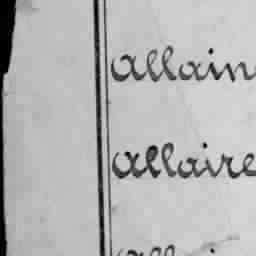 Allain
Allaire